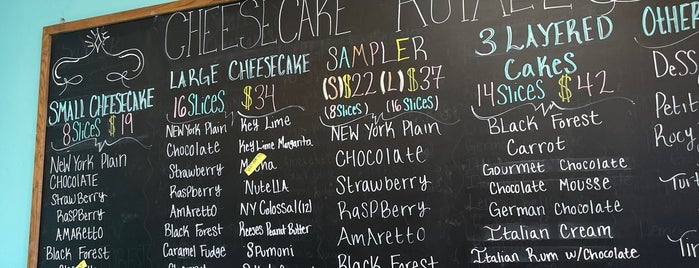 CHEESECAKE ROYALE
SMALL CHEESECAKE
8 SLICES $19
NEW YORK PLAIN
CHOCOLATE
STRAWBERRY
RASPBERRY
AMARETTO
Black Forest
LARGE CHEESECAKE
16 SLICES $34
NEW YORK Plain
Chocolate
Strawberry
Raspberry
Amaretto
Black Forest
Caramel Fudge
Key Lime
Key Lime Margarita
Nutella
NY Colossal (12)
Reeses Peanut Butter
Spumoni
SAMPLER
(S) $22 (L) $37
(8 Slices) (16 SLICES)
NEW YORK Plain
CHOCOLATE
Strawberry
RASPBERRY
Amaretto
Black Forest
3 LAYERED
Cakes
14 SLICES $42
Black Forest
Carrot
Gourmet Chocolate
Chocolate Mousse
German Chocolate
Italian Cream
Italian Rum w/Chocolate